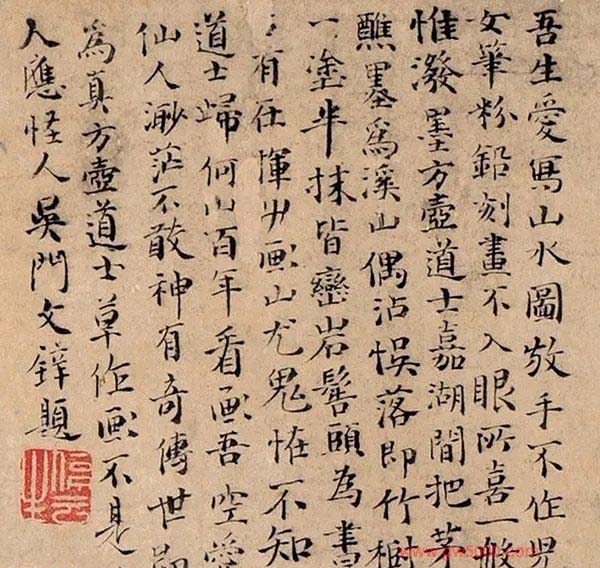 吾生愛寫山水圖放手不作兒
女筆粉鉛刻畫不入眼所喜一般
惟潑墨方壺道士嘉湖間把茅
醮墨爲溪山偶沾悞落即竹樹
一塗半抹皆巒岩髻頤為書
有在揮画山尤鬼恠不知
道士歸何山百年看画吾空愛
仙人渺茫不敢神有奇傳世
為真方壺道士草作画不見
人應怪人吳門文題